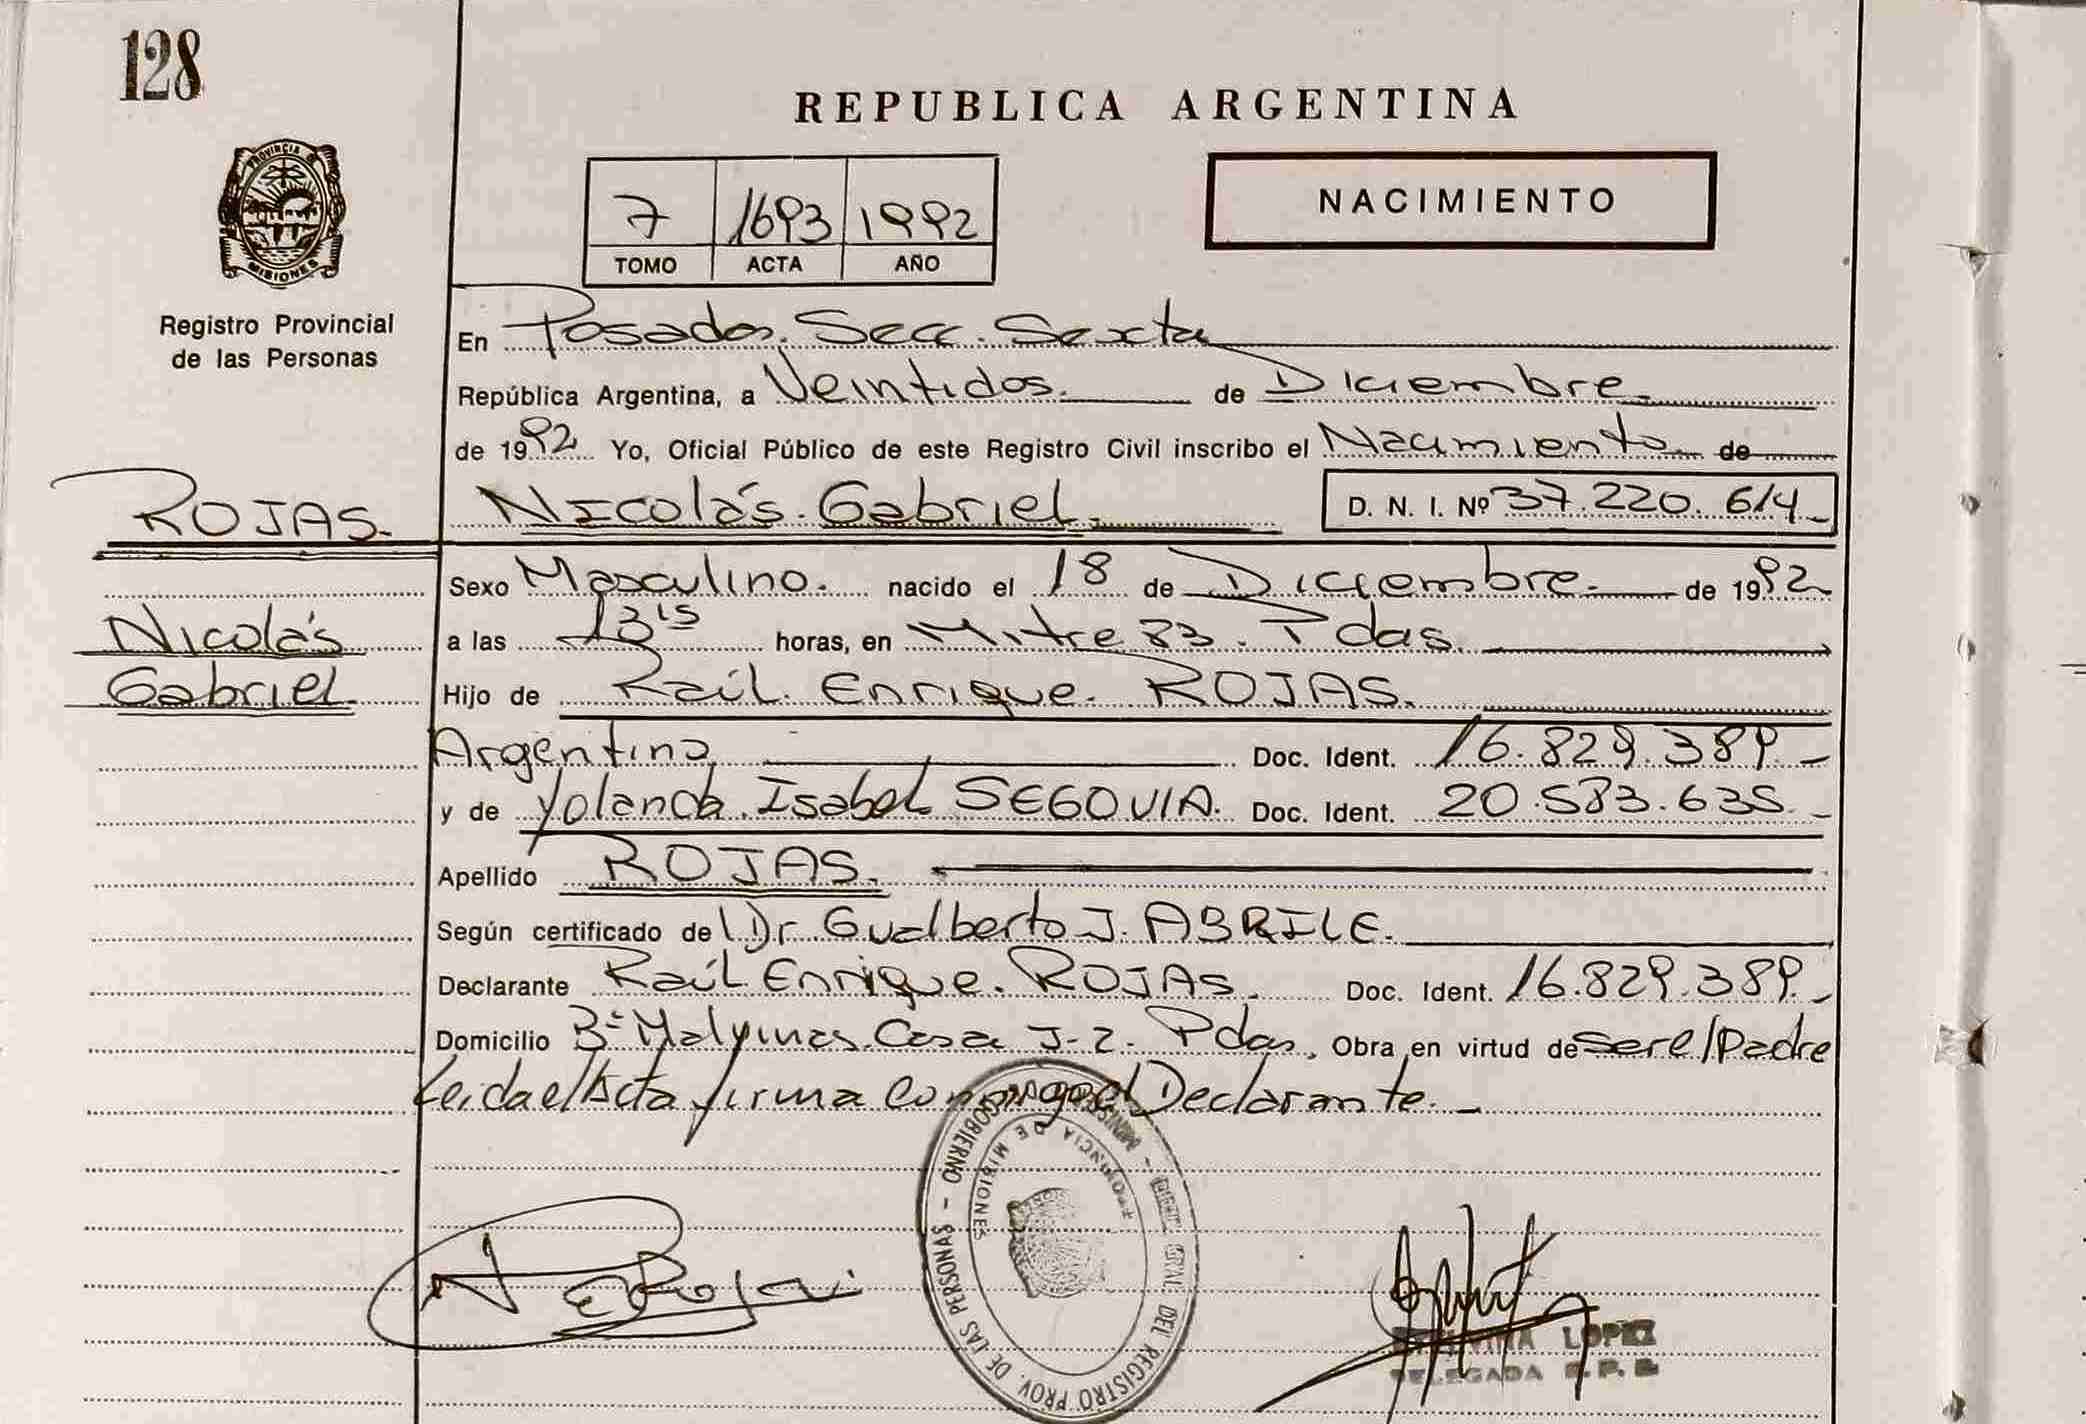 128
REPUBLICA ARGENTINA
PROVINCIA D
MISIONES
Registro Provincial
de las Personas
7 1693 1992
TOMO ACTA AÑO
NACIMIENTO
En Posadas. Secc. Sexta
República Argentina, a Veintidos. de Diciembre.
de 1992. Yo, Oficial Público de este Registro Civil inscribo el Nacimiento de
ROJAS.
Nicolás Gabriel
Nicolás. Gabriel. D. N. I. Nº 37.220.614_
Sexo Masculino. nacido el 18 de Diciembre. de 1992
a las 13 15 horas, en Mitre 83. Pdas.
Hijo de Raúl. Enrique. ROJAS.
Argentino Doc. Ident. 16.829.389._
y de Yolanda. Isabel SEGOVIA. Doc. Ident. 20.583.635._
Apellido ROJAS.
Según certificado de Dr Gualberto J. ABRILE.
Declarante Raúl Enrique. ROJAS. Doc. Ident. 16.829.389._
Domicilio Bº Malvinas. Casa J-2. Pdas. Obra en virtud de ser el Padre
Leida el Acta firma conmigo el Declarante._
DEL REGISTRO PROV. DE LAS PERSONAS - GOBIERNO
PROVINCIA DE MISIONES
LOPEZ
DELEGADA R. P. P.